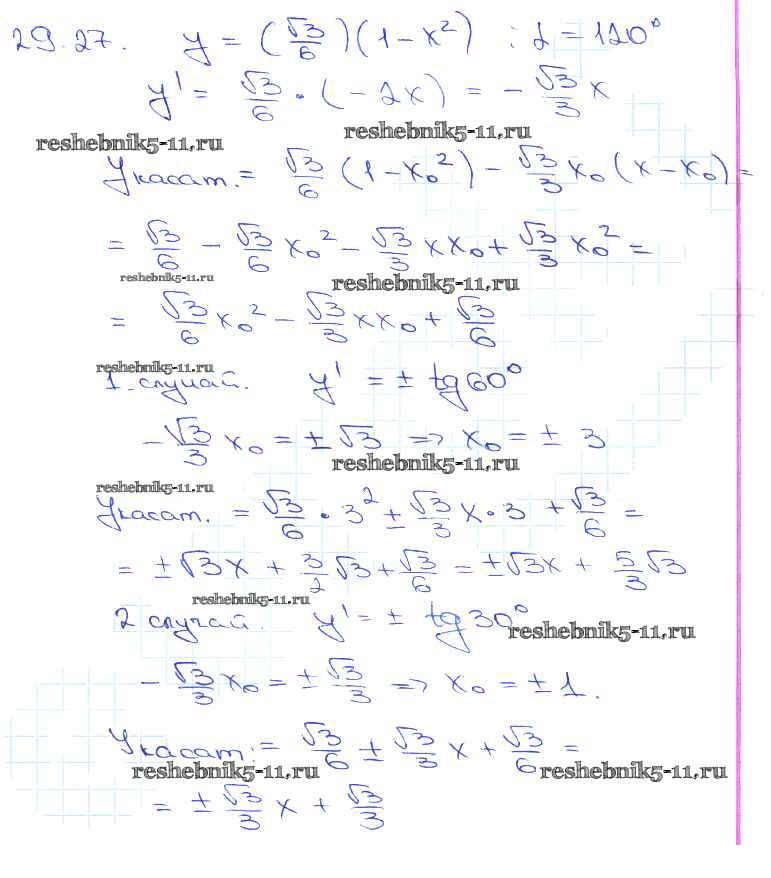 29.27. y = (√3/6)(1 - x²) ; α = 120°
y' = √3/6 · (-2x) = - √3/3 x
reshebnik5-11.ru reshebnik5-11.ru
Yкасат. = √3/6 (1 - x₀²) - √3/3 x₀ (x - x₀) =
= √3/6 - √3/6 x₀² - √3/3 x x₀ + √3/3 x₀² =
reshebnik5-11.ru reshebnik5-11.ru
= √3/6 x₀² - √3/3 x x₀ + √3/6
reshebnik5-11.ru
1 случай. y' = ± tg 60°
- √3/3 x₀ = ± √3 => x₀ = ± 3
reshebnik5-11.ru
reshebnik5-11.ru
Yкасат. = √3/6 · 3² ± √3/3 x · 3 + √3/6 =
= ± √3 x + 3/2 √3 + √3/6 = ± √3 x + 5/3 √3
reshebnik5-11.ru
2 случай. y' = ± tg 30°
reshebnik5-11.ru
- √3/3 x₀ = ± √3/3 => x₀ = ± 1.
Yкасат. = √3/6 ± √3/3 x + √3/6 =
reshebnik5-11.ru reshebnik5-11.ru
= ± √3/3 x + √3/3